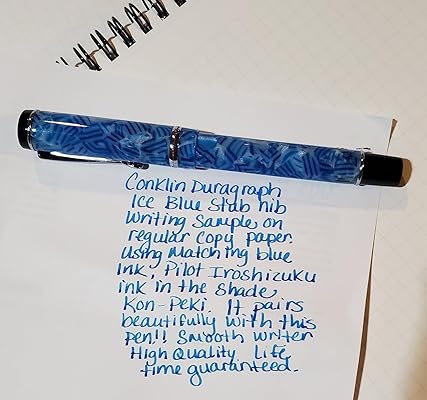 Conklin Duragraph
Ice Blue Stub nib
Writing Sample on
regular copy paper.
Using Matching blue
Ink, Pilot Iroshizuku
ink in the shade
Kon-Peki. It pairs
beautifully with this
pen!! Smooth writer
High Quality. Life
time guaranteed.